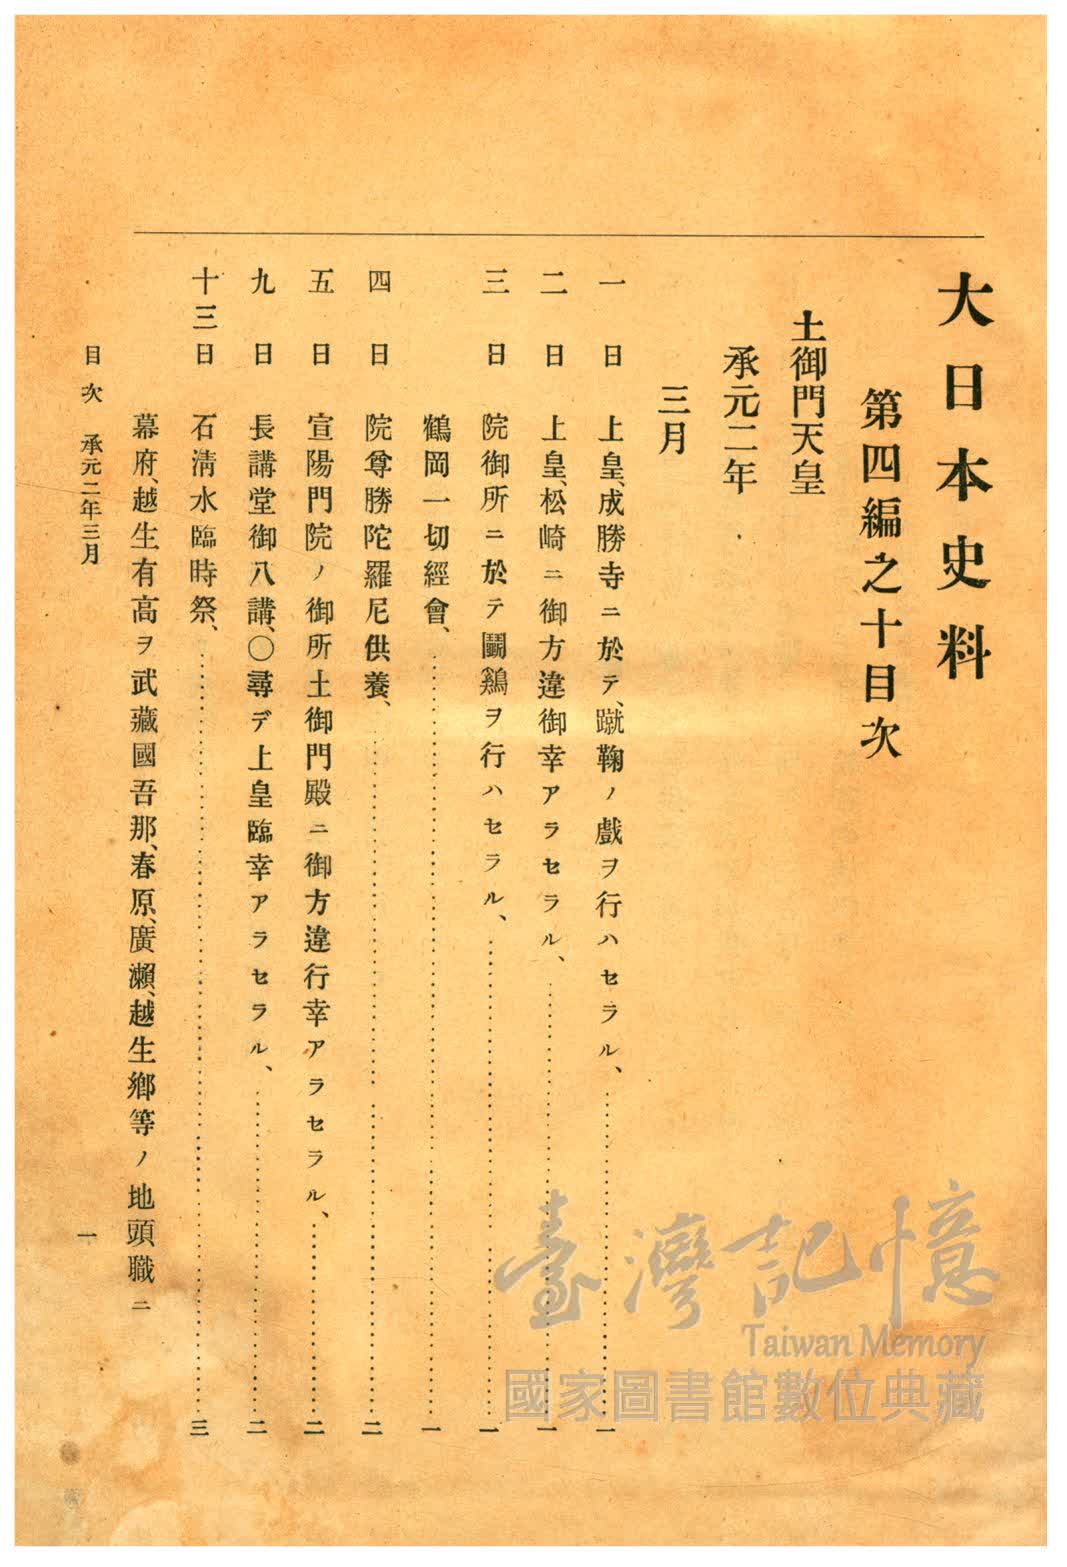 大日本史料
第四編之十目次
土御門天皇
承元二年
三月
一日 上皇、成勝寺ニ於テ、蹴鞠ノ戲ヲ行ハセラル、……一
二日 上皇、松崎ニ御方違御幸アラセラル、……一
三日 院御所ニ於テ鬪鷄ヲ行ハセラル、……一
鶴岡一切經會、……一
四日 院尊勝陀羅尼供養、……二
五日 宣陽門院ノ御所土御門殿ニ御方違行幸アラセラル、……二
九日 長講堂御八講、〇尋デ上皇臨幸アラセラル、……二
十三日 石淸水臨時祭、……三
幕府、越生有高ヲ武藏國吾那、春原、廣瀨、越生鄕等ノ地頭職ニ
目次 承元二年三月 一
臺灣記憶
Taiwan Memory
國家圖書館數位典藏